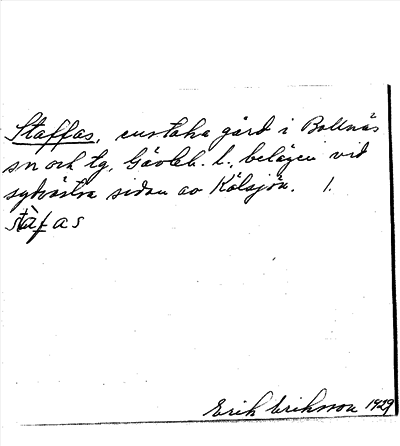 Staffas, enstaka gård i Bollnäs
sn och tg, Gävleb. l., belägen vid
sydvästra sidan av Kälsjön. 1.
stàfas
Erik Eriksson 1929